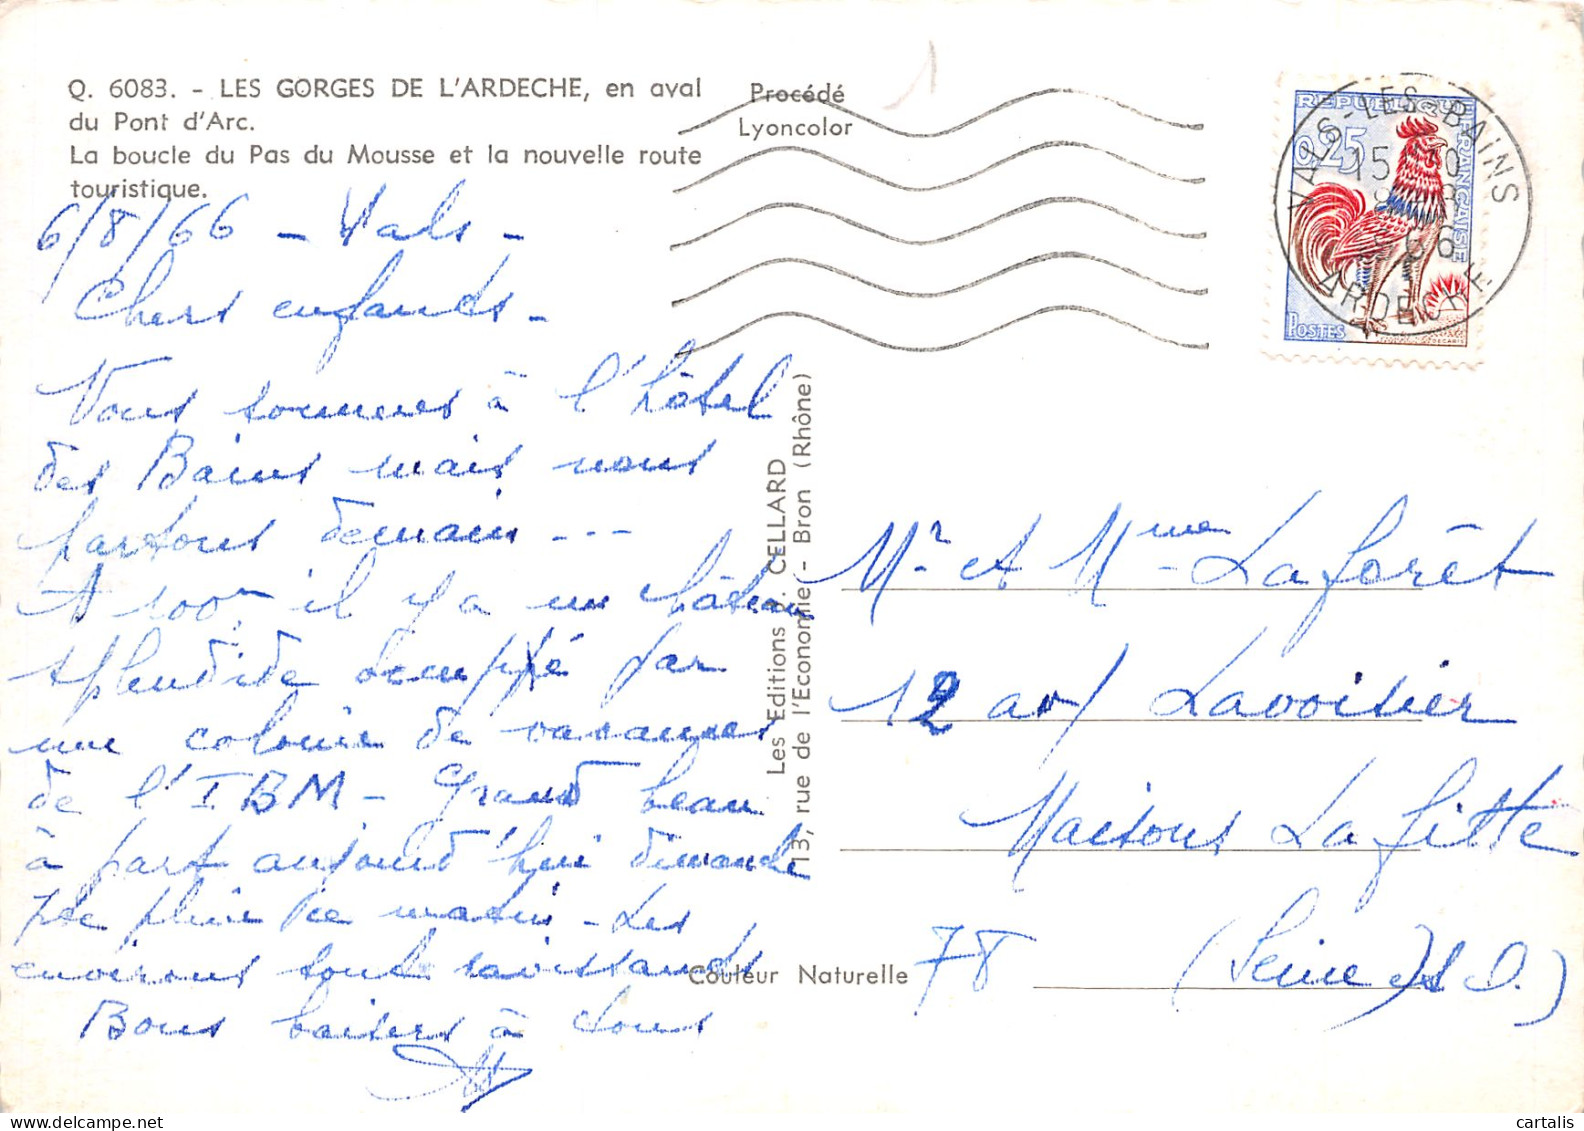 Q. 6083. - LES GORGES DE L'ARDECHE, en aval
du Pont d'Arc.
La boucle du Pas du Mousse et la nouvelle route
touristique.
Procédé
Lyoncolor
REPUBLIQUE FRANÇAISE
0,25
POSTES
VALS-LES-BAINS
ARDECHE
6/8/66 - Vals -
Chers enfants -
Nous sommes à l'hôtel
des Bains mais nous
partons demain ---
A 100m il y a un château
splendide occuppé par
une colonie de vacances
de l'IBM - Grand beau
à part aujourd'hui dimanche
pluie ce matin - Les
environs sont ravissants
Bons baisers à tous
Les Editions J. CELLARD
13, rue de l'Economie - Bron (Rhône)
Couleur Naturelle
Mr et Mme Laforêt
12 av/ Lavoisier
Maisons Lafitte
78 (Seine et O.)
cartalis